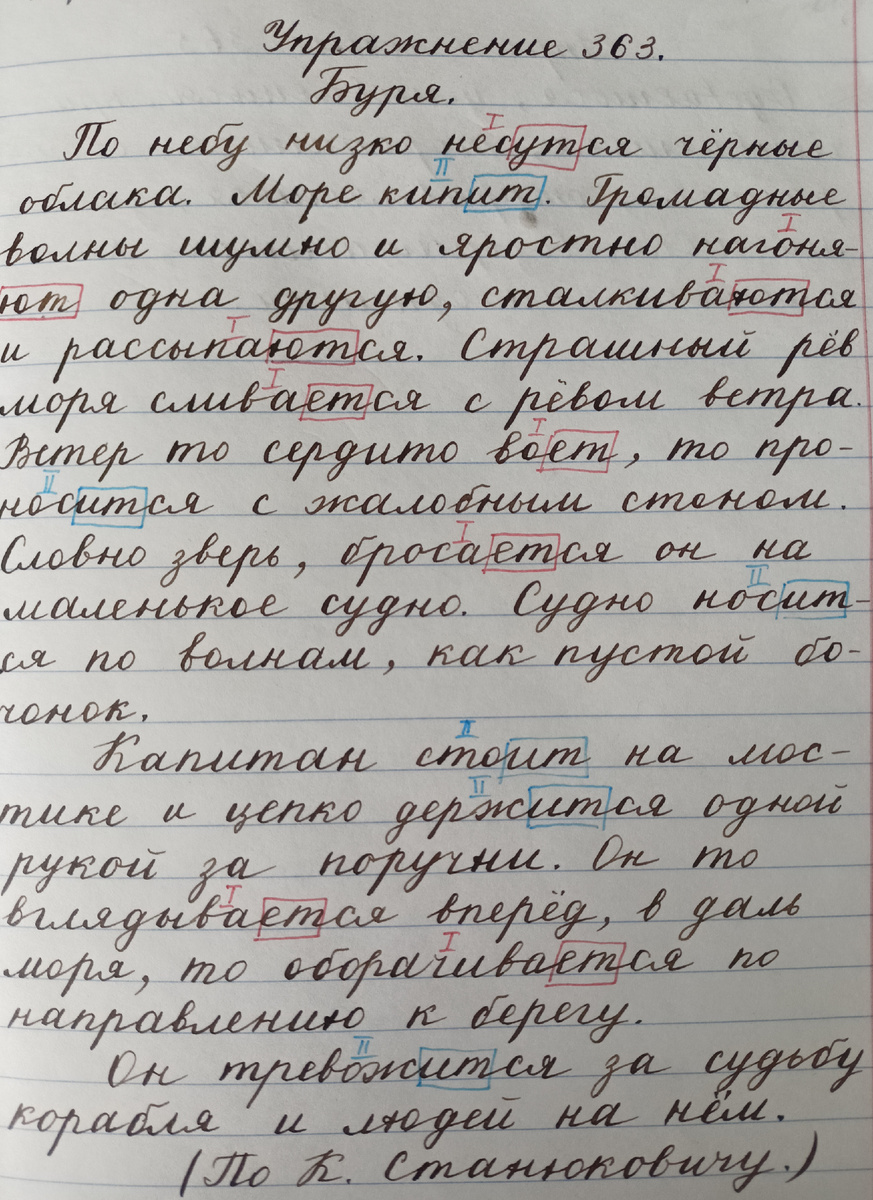 Упражнение 363.
Буря.
По небу низко несутся чёрные
облака. Море кипит. Громадные
волны шумно и яростно нагоня-
ют одна другую, сталкиваются
и рассыпаются. Страшный рёв
моря сливается с рёвом ветра.
Ветер то сердито воет, то про-
носится с жалобным стоном.
Словно зверь, бросается он на
маленькое судно. Судно носит-
ся по волнам, как пустой бо-
чонок.
Капитан стоит на мос-
тике и цепко держится одной
рукой за поручни. Он то
вглядывается вперёд, в даль
моря, то оборачивается по
направлению к берегу.
Он тревожится за судьбу
корабля и людей на нём.
(По К. Станюковичу.)